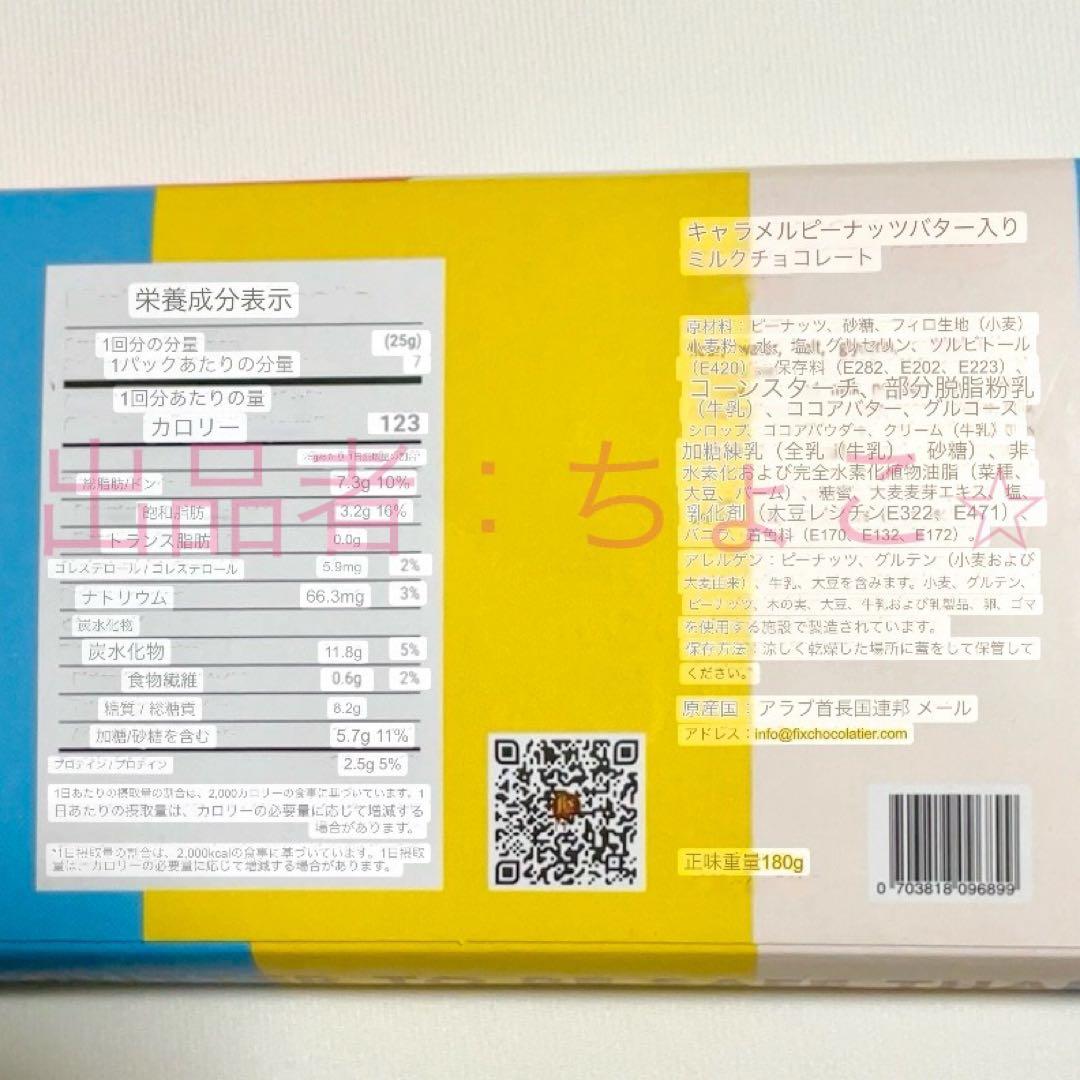 栄養成分表示
1回分の分量 (25g)
1パックあたりの分量 7
1回分あたりの量
カロリー 123
総脂肪/ドン 7.3g 10%
飽和脂肪 3.2g 16%
トランス脂肪 0.0g
コレステロール / コレステロール 5.9mg 2%
ナトリウム 66.3mg 3%
炭水化物
炭水化物 11.8g 5%
食物繊維 0.6g 2%
糖質 / 総糖質 8.2g
加糖/砂糖を含む 5.7g 11%
プロテイン / プロテイン 2.5g 5%
1日あたりの摂取量の割合は、2,000カロリーの食事に基づいています。1
日あたりの摂取量は、カロリーの必要量に応じて増減する
場合があります。
*1日摂取量の割合は、2,000kcalの食事に基づいています。1日摂取
量は、カロリーの必要量に応じて増減する場合があります。
キャラメルピーナッツバター入り
ミルクチョコレート
原材料：ピーナッツ、砂糖、フィロ生地（小麦）
小麦粉、水、塩、グリセリン、ソルビトール
（E420）、保存料（E282、E202、E223）、
コーンスターチ、部分脱脂粉乳
（牛乳）、ココアバター、グルコース
シロップ、ココアパウダー、クリーム（牛乳）
加糖練乳（全乳（牛乳）、砂糖）、非
水素化および完全水素化植物油脂（菜種、
大豆、パーム）、糖蜜、大麦麦芽エキス、塩、
乳化剤（大豆レシチンE322、E471）、
バニラ、着色料（E170、E132、E172）。
アレルゲン：ピーナッツ、グルテン（小麦および
大麦由来）、牛乳、大豆を含みます。小麦、グルテン、
ピーナッツ、木の実、大豆、牛乳および乳製品、卵、ゴマ
を使用する施設で製造されています。
保存方法：涼しく乾燥した場所に蓋をして保管して
ください。
原産国：アラブ首長国連邦 メール
アドレス：info@fixchocolatier.com
正味重量180g
0 703818 096899
出品者：ちょこ☆